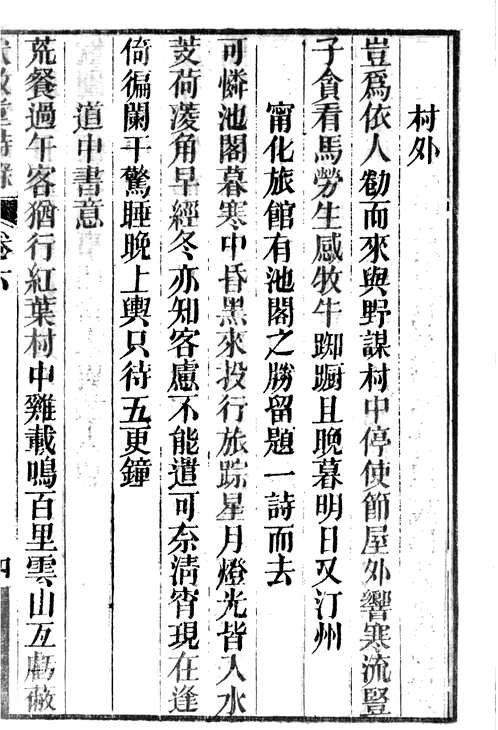 村外
豈爲依人勸而來與野謀村中停使節屋外響寒流豎
子貪看馬勞生感牧牛踟蹰且晚暮明日又汀州
甯化旅館有池閣之勝留題一詩而去
可憐池閣暮寒中昏黑來投行旅踪星月燈光皆入水
芰荷菱角早經冬亦知客慮不能遣可奈清宵現在逢
倚徧闌干驚睡晚上輿只待五更鐘
道中書意
荒餐過午客猶行紅葉村中雞載鳴百里雲山互虧蔽
卷六
四